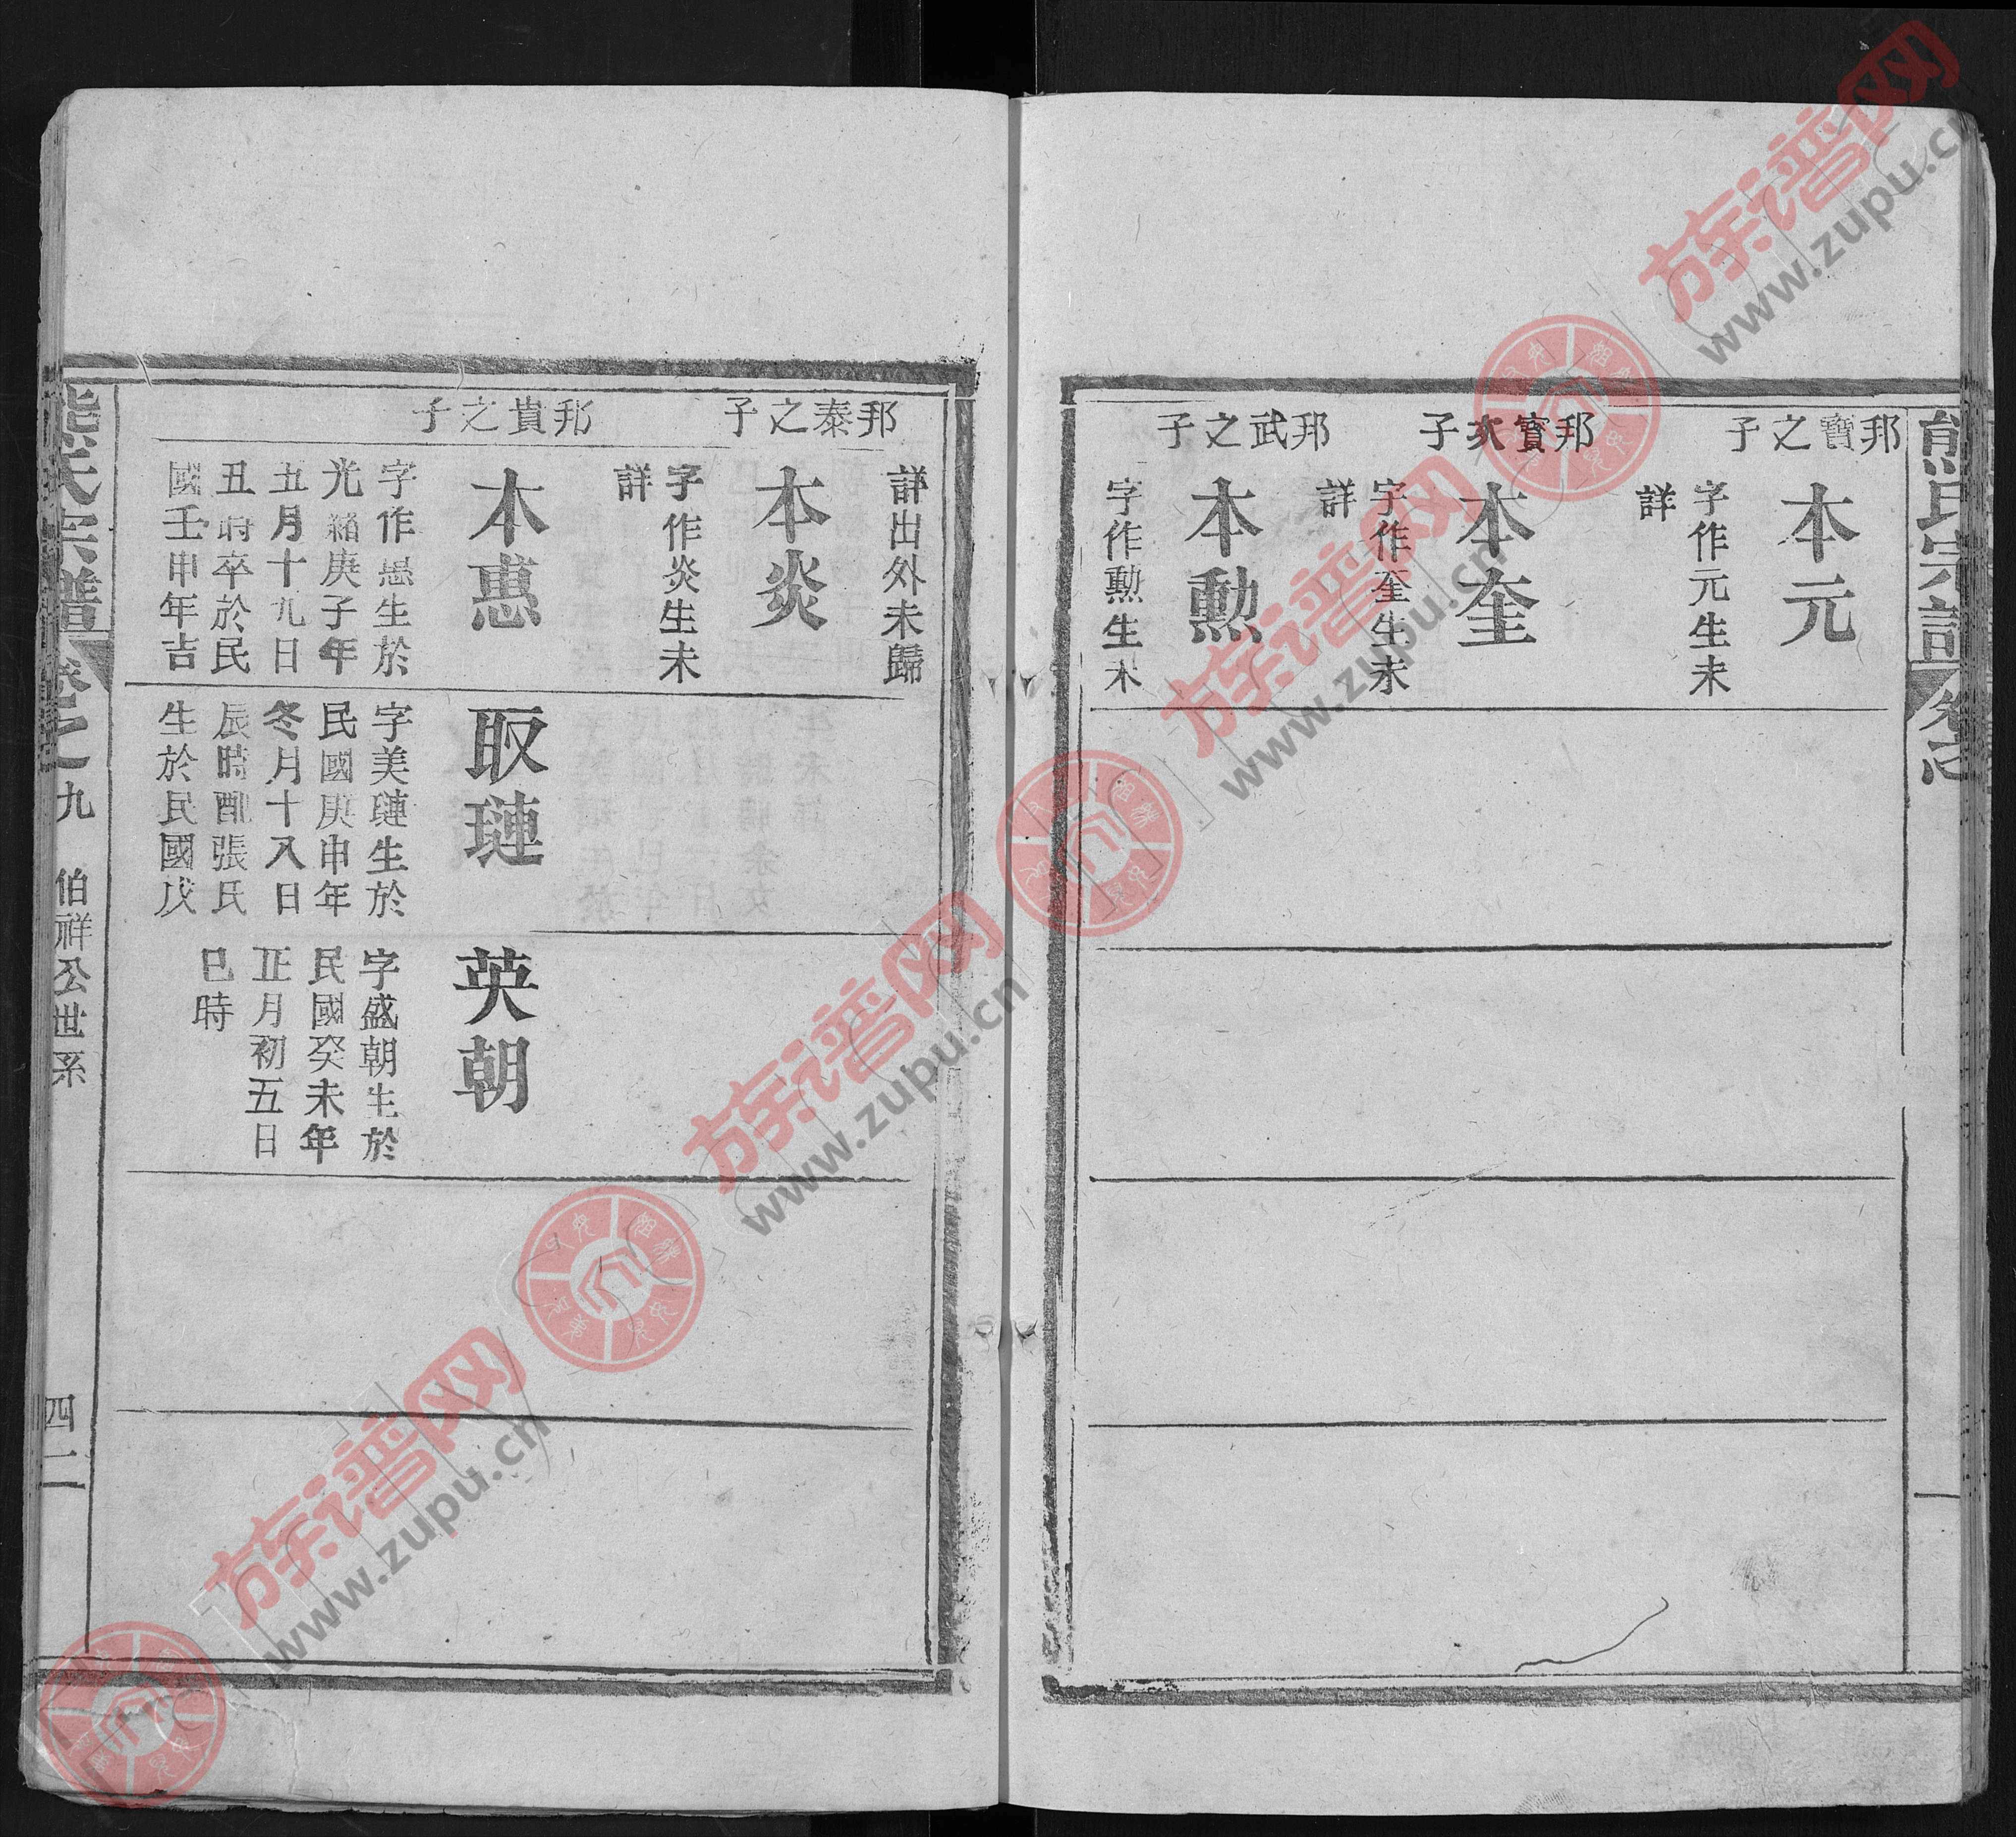 熊氏宗譜
卷之
邦寶之子
本元
字作元生未
詳
邦寶次子
本奎
字作奎生未
詳
邦武之子
本勲
字作勲生未
詳出外未歸
邦泰之子
本炎
字作炎生未
詳
邦貴之子
本惠
字作惠生於
光緒庚子年
五月十九日
丑時卒於民
國壬申年吉
取璉
字美璉生於
民國庚申年
冬月十八日
辰時配張氏
生於民國戊
英朝
字盛朝生於
民國癸未年
正月初五日
巳時
熊氏宗譜
卷之九
伯祥公世系
四二
族谱网
www.zupu.cn
族谱网
www.zupu.cn
族谱网
www.zupu.cn
族谱网
www.zupu.cn